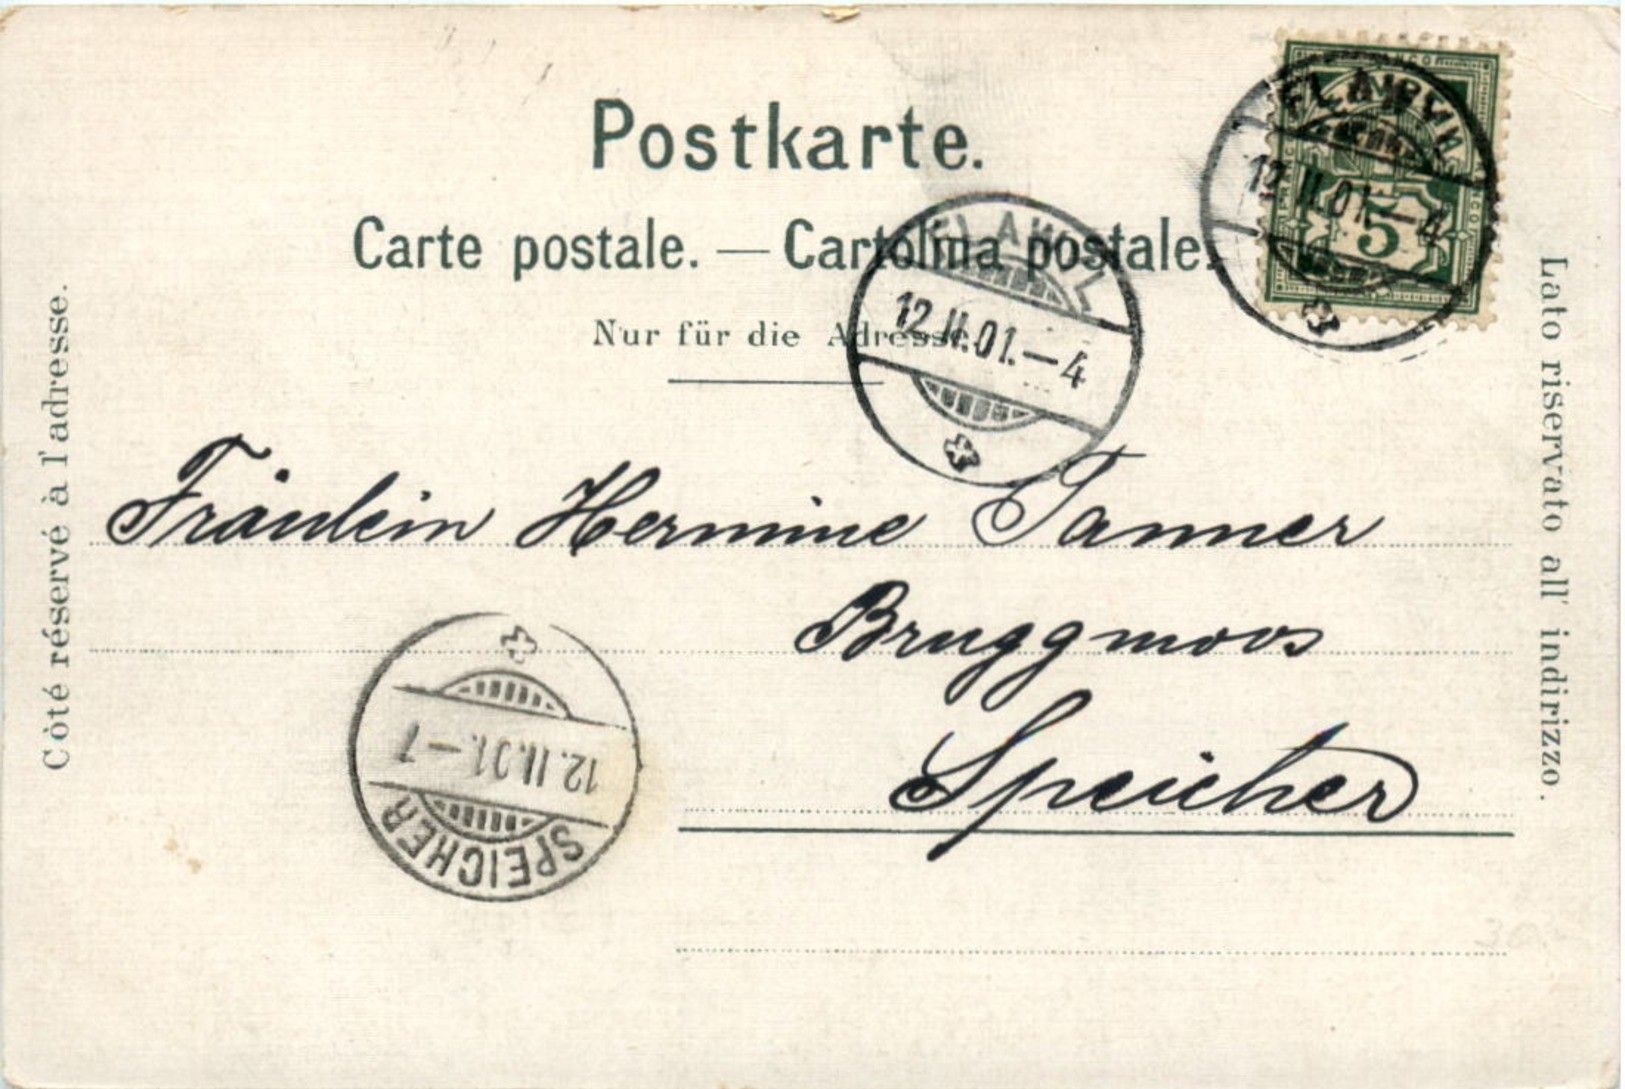 Postkarte.
Carte postale. — Cartolina postale.
Nur für die Adresse.
Côté réservé à l'adresse.
Lato riservato all' indirizzo.
FLAWIL
12.II.01.–4
5
FLAWIL
12.II.01.–4
Fräulein Hermine Tanner
Bruggmoos
Speicher
12.II.01.–7
SPEICHER